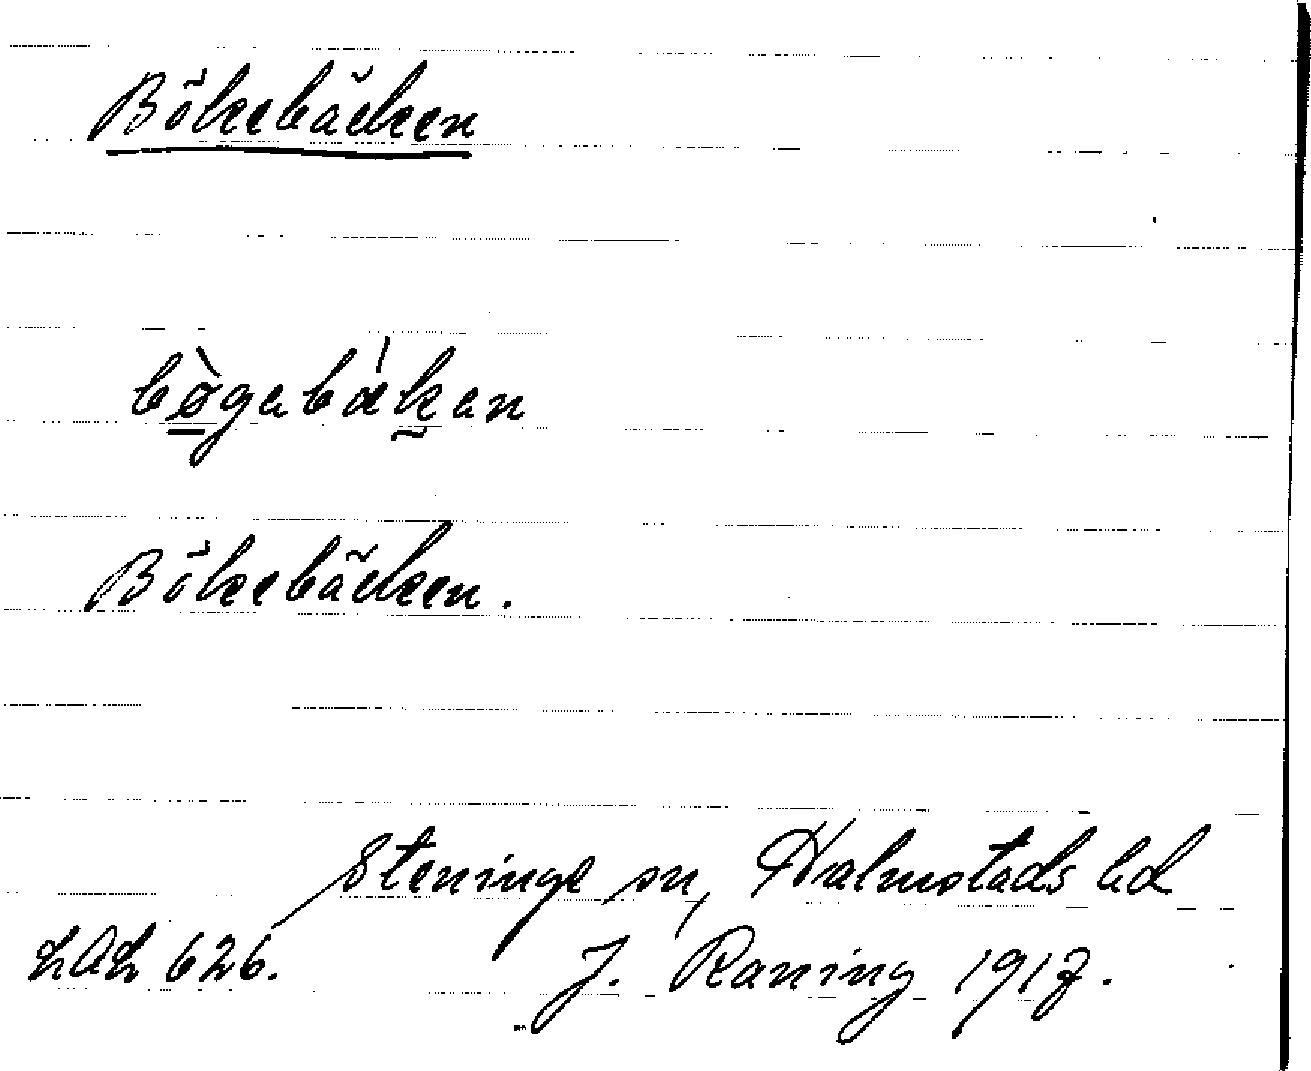 Bökebäcken
bø̀gabǽkan
Bökebäcken.
Steninge sn, Halmstads hd
LAL 626. J. Raning 1917.